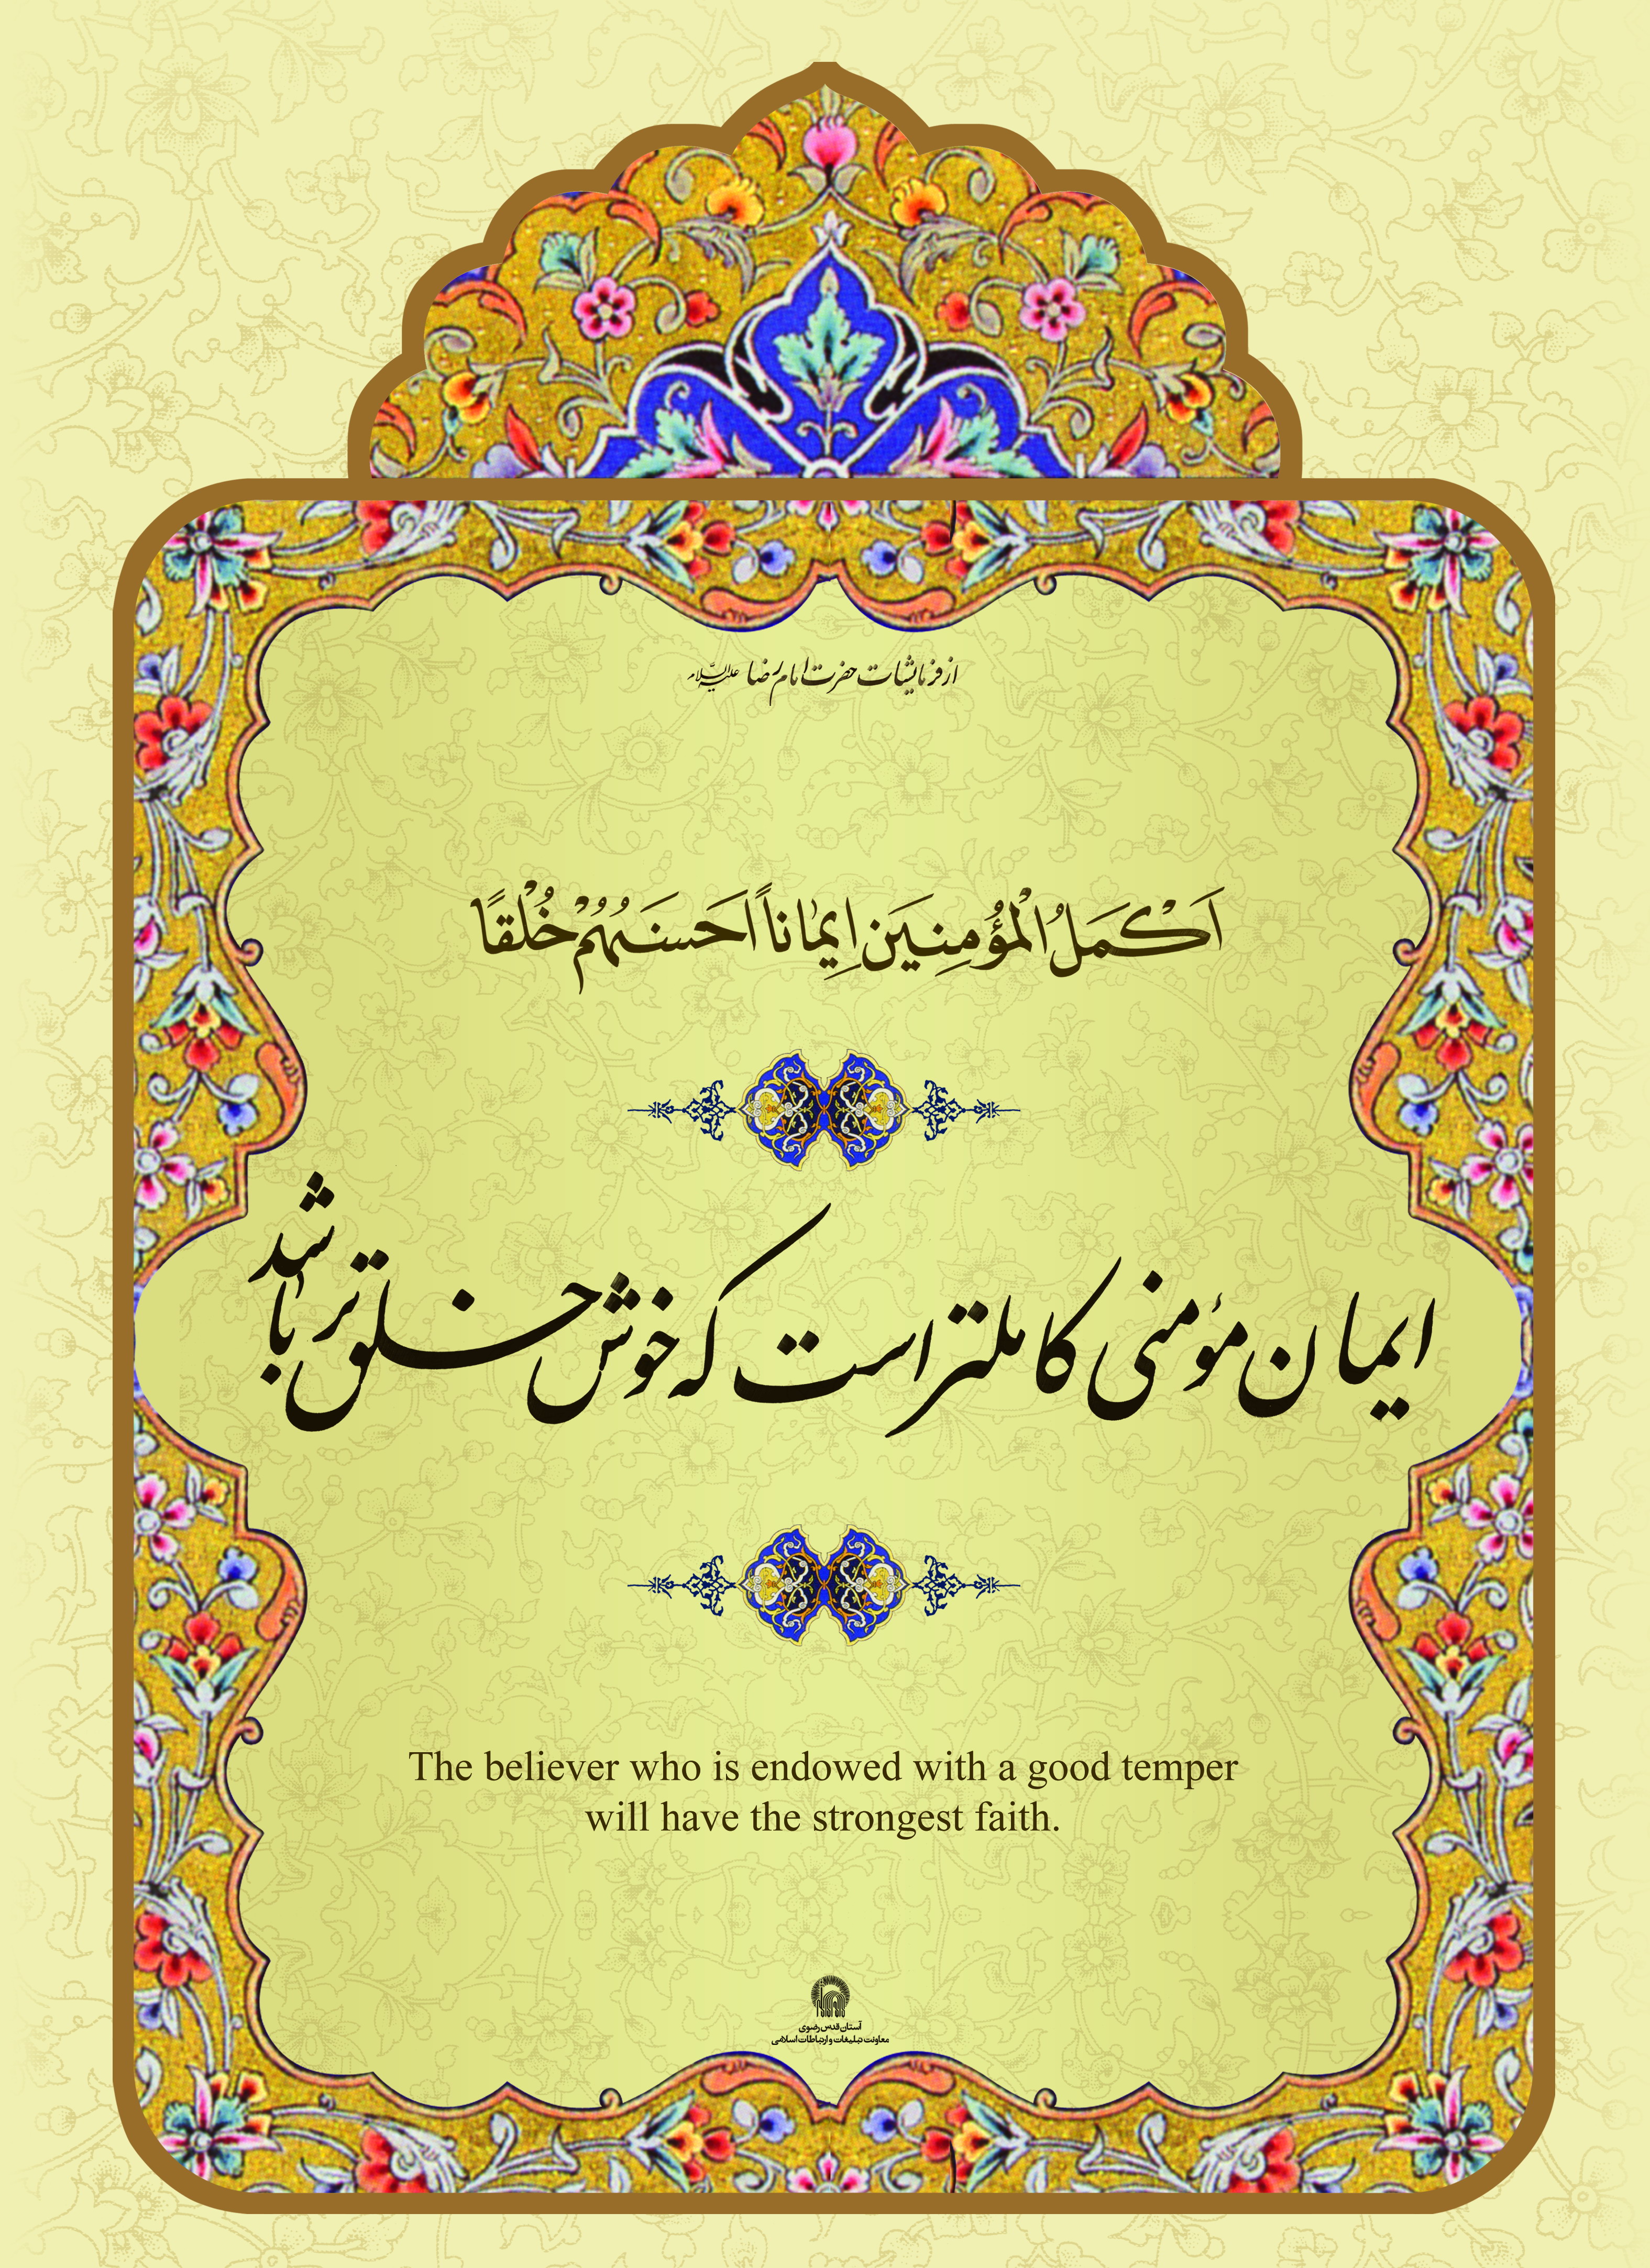 از فرمایشات حضرت امام رضا علیه‌السّلام
اَکْمَلُ الْمُؤُمِنِیَن اِیمٰاناً اَحَسنَهُمُْ خُلْقًا
ایمان مؤمنی کاملتر است که خوش خلق تر باشد
The believer who is endowed with a good temper
will have the strongest faith.
آستان قدس رضوی
معاونت تبلیغات و ارتباطات اسلامی